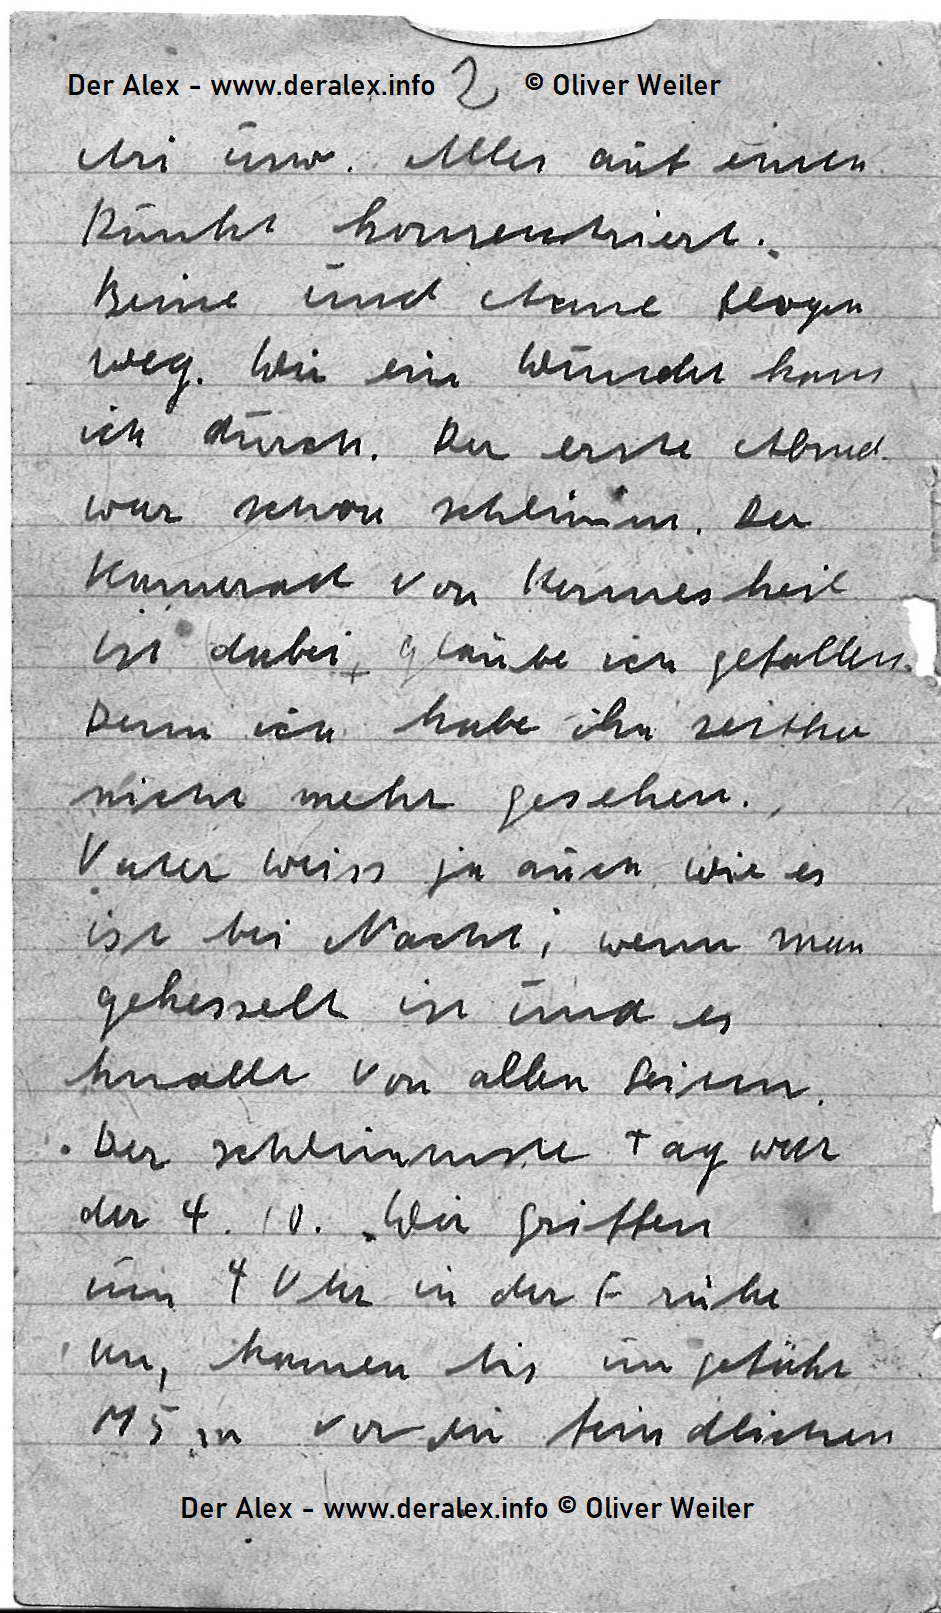 Der Alex - www.deralex.info 2 © Oliver Weiler
Ari usw. Alles auf einen
Punkt konzentriert.
Beine und Arme flogen
weg. Wie ein Wunder kam
ich durch. Der erste Abend
war schon schlimm. Der
Kamerad von
ist dabei, glaube ich gefallen.
Denn ich habe ihn seither
nicht mehr gesehen.
Vater weiss ja auch, wie es
ist bei Nacht, wenn man
gekesselt ist und es
knallt von allen Seiten.
Der schlimmste Tag war
der 4. 10. Wir griffen
um 4 Uhr in der Frühe
an, kamen bis ungefähr
m vor feindlichen
Der Alex - www.deralex.info © Oliver Weiler